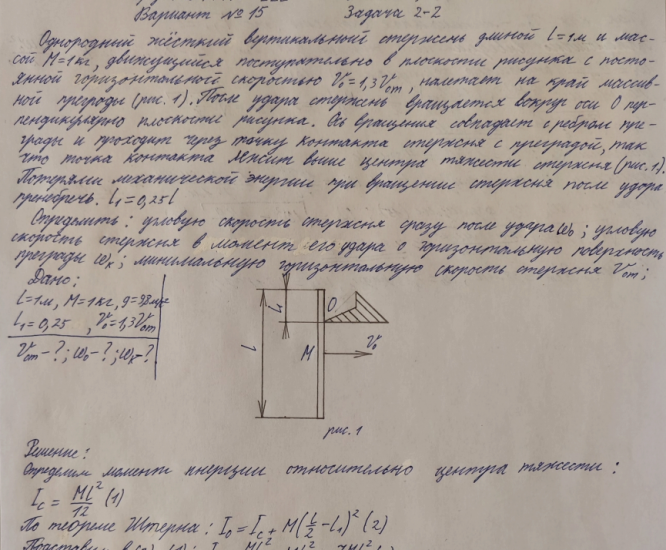 Вариант № 15 Задача 2-2
Однородный жёсткий вертикальный стержень длиной l=1м и мас-
сой M=1кг, движущийся поступательно в плоскости рисунка с посто-
янной горизонтальной скоростью V₀=1,3Vот, налетает на край массив-
ной преграды (рис. 1). После удара стержень вращается вокруг оси O пер-
пендикулярно плоскости рисунка. Ось вращения совпадает с ребром пре-
грады и проходит через точку контакта стержня с преградой, так
что точка контакта лежит выше центра тяжести стержня (рис. 1).
Потерями механической энергии при вращении стержня после удара
пренебречь. l₁=0,25l
Определить: угловую скорость стержня сразу после удара ω₀; угловую
скорость стержня в момент его удара о горизонтальную поверхность
преграды ωк; минимальную горизонтальную скорость стержня Vот;
Дано:
l=1м, M=1кг, g=9,8м/с²
l₁=0,25, V₀=1,3Vот
Vот-?; ω₀-?; ωк-?
l₁
O
l
M
V₀
рис. 1
Решение:
Определим момент инерции относительно центра тяжести:
I_c = Ml²/12 (1)
По теореме Штерна: I₀ = I_c + M(l/2 - l₁)² (2)